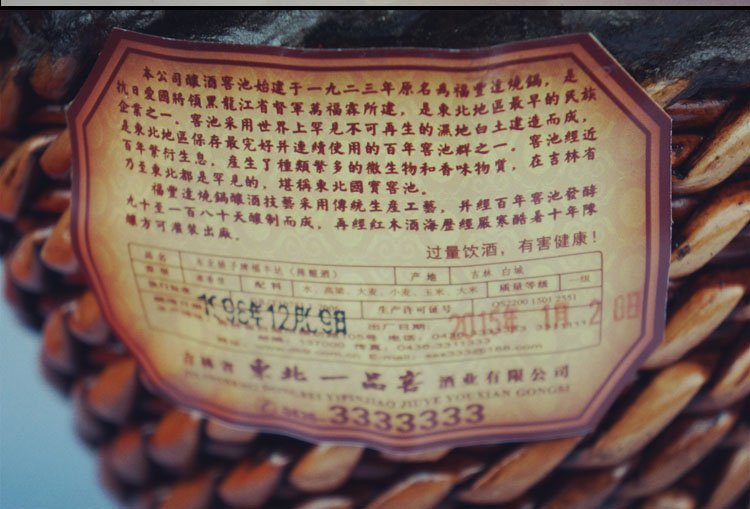 本公司釀酒窖池始建于一九二三年原名為福豐達燒鍋，是
抗日愛國將領黑龍江省督軍萬福霖所建，是東北地區最早的民族
企業之一。窖池采用世界上罕見不可再生的濕地白土建造而成，
是東北地區保存最完好并連續使用的百年窖池群之一。窖池經近
百年繁衍生息，産生了種類繁多的微生物和香味物質，在吉林省
乃至東北都是罕見的，堪稱東北國寶窖池。
福豐達燒鍋釀酒技藝采用傳統生産工藝，并經百年窖池發酵
九十至一百八十天釀制而成，再經紅木酒海歷經嚴寒酷暑十年陳
釀方可灌裝出廠。
过量饮酒，有害健康！
品名
（陳釀酒）
产地
吉林 白城
香型
配料
水、高粱、大麦、小麦、玉米、大米
质量等级
一级
生产许可证号
QS2200 1501 2551
12月09日
出厂日期：
2015年 1月 2 8日
电话：
传真：0436-3311333
E-mail:
吉林省 東北一品窖 酒业有限公司
JIUYE YOU XIAN GONGSI
3333333